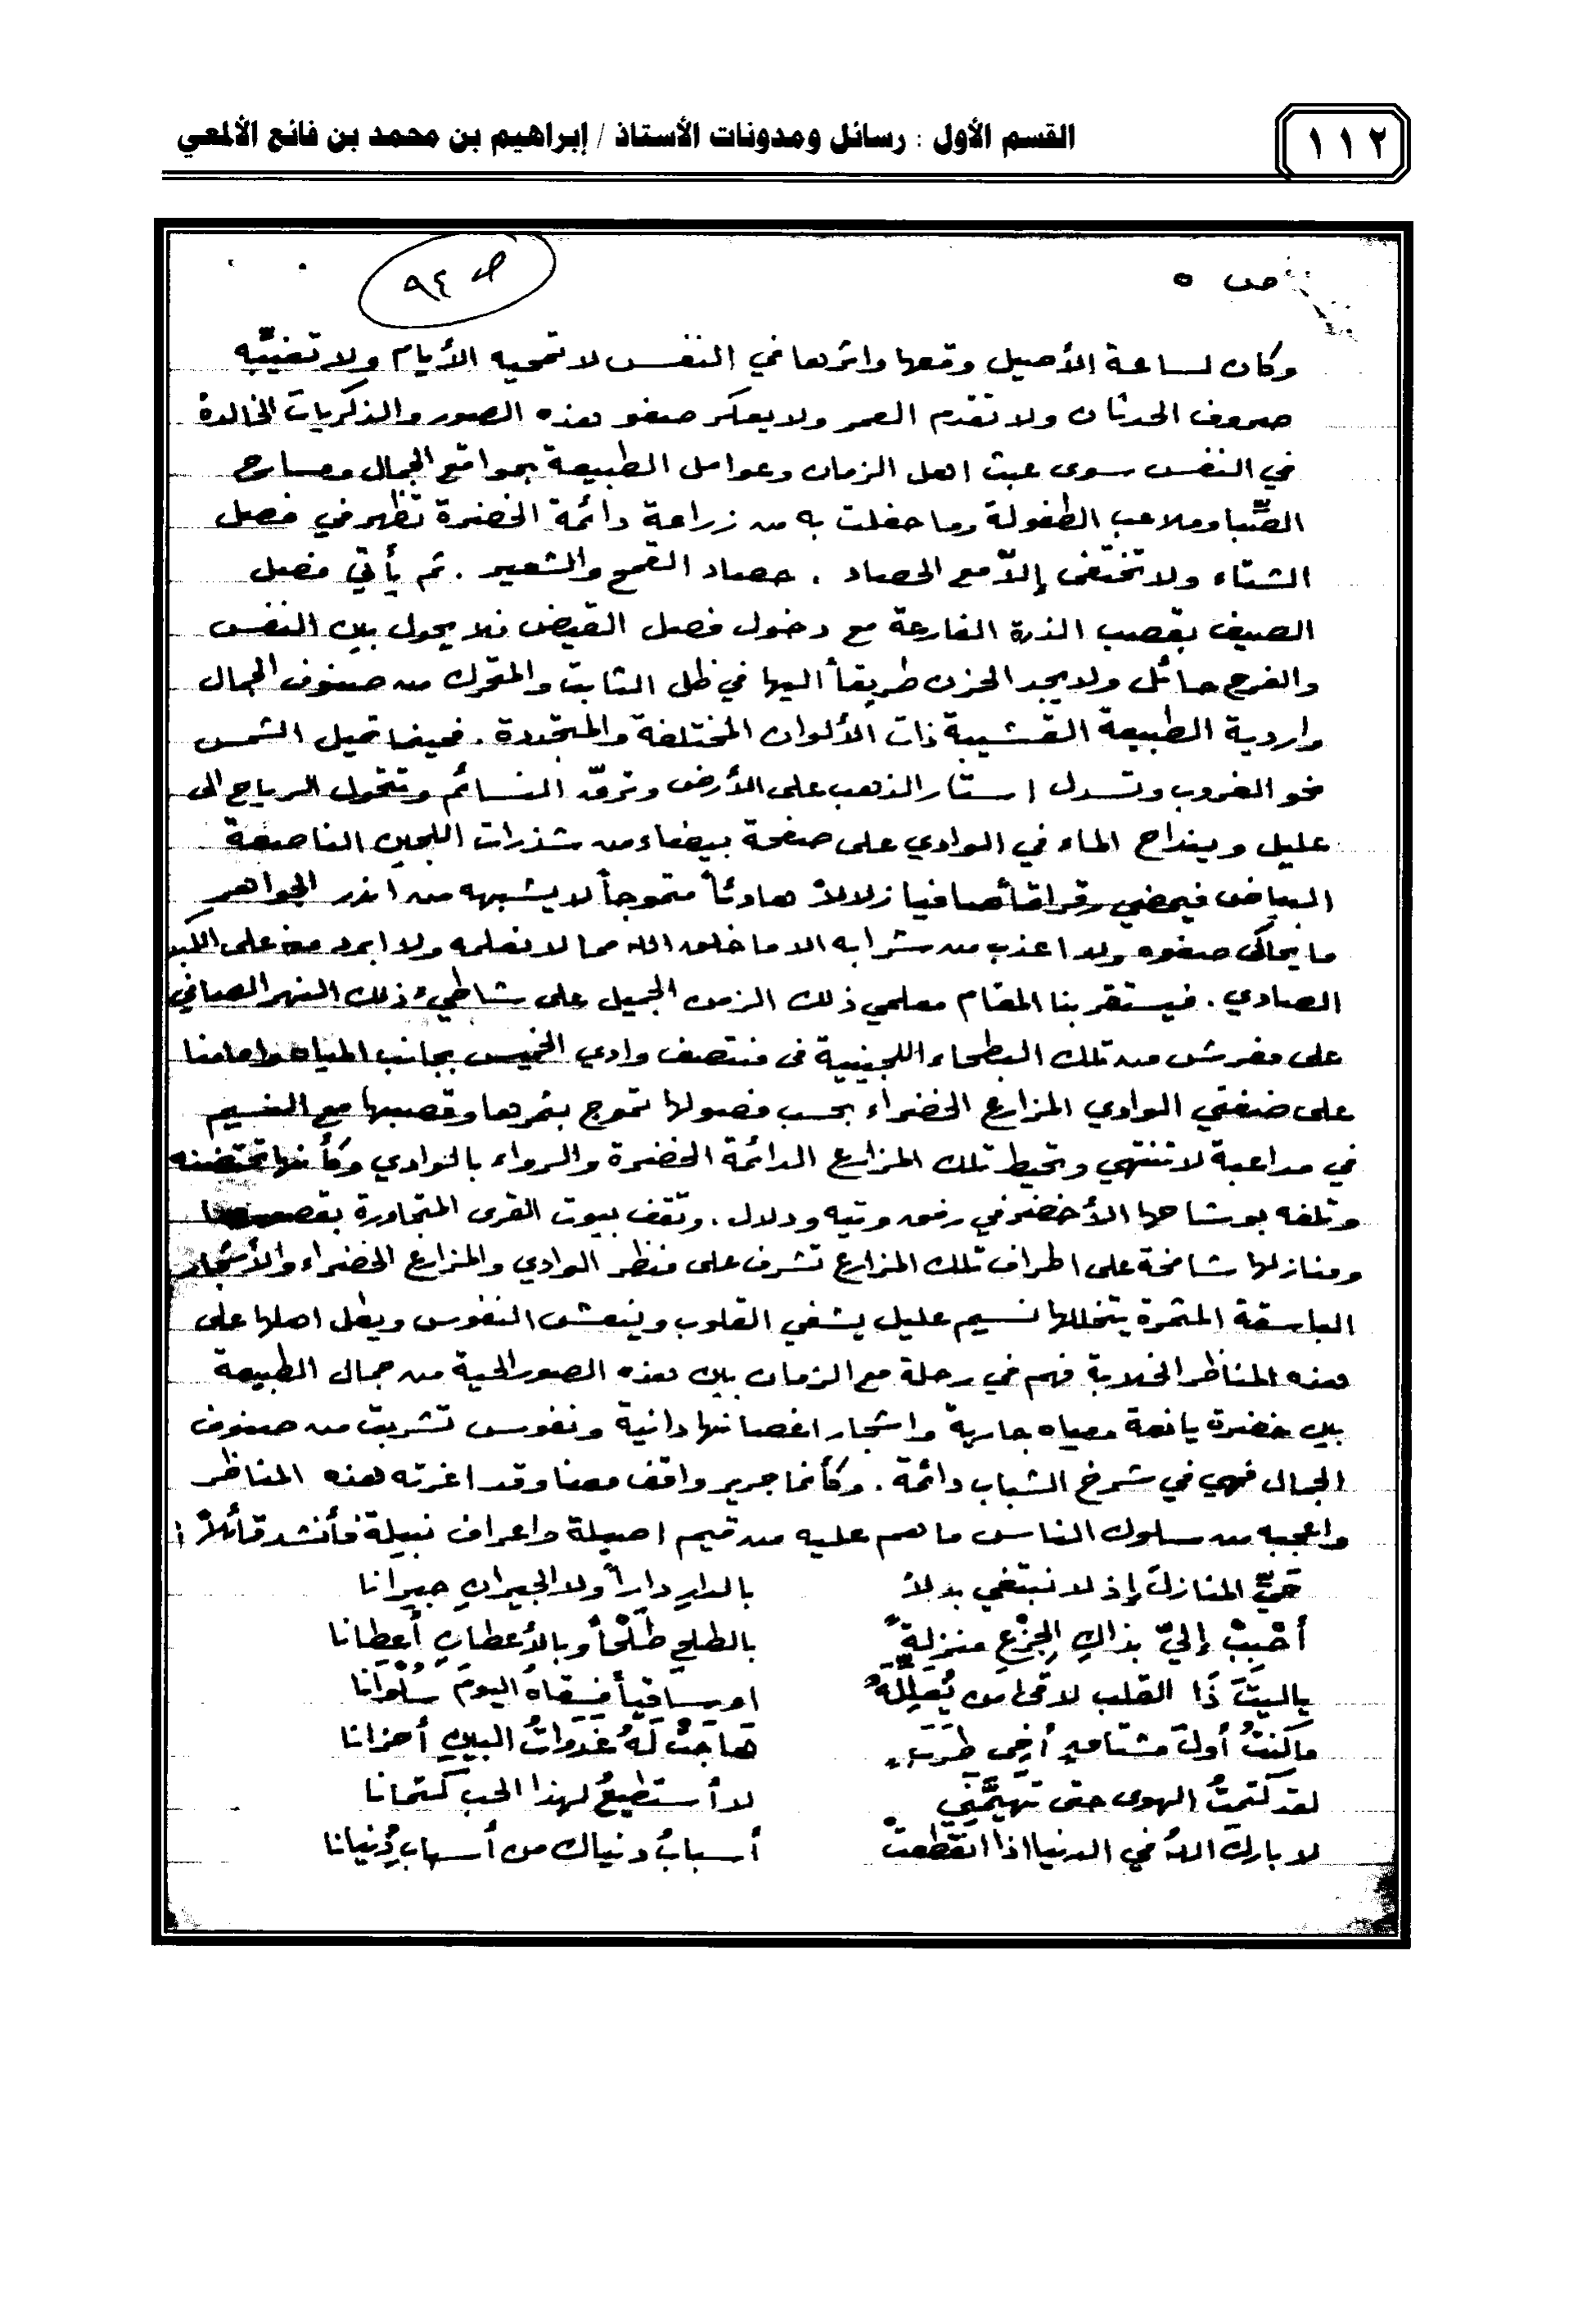 ١١٢
القسم الأول : رسائل ومدونات الأستاذ / إبراهيم بن محمد بن فائع الألمعي
ص ٥
ص ٩٤
وكان لساعة الأصيل وقعها واثرها في النفس لا تمحيه الأيام ولا تغيّبه
صروف الحدثان ولا تقدم العمر ولا يعكر صفو هذه الصور والذكريات الخالدة
في النفس سوى عبث اهل الزمان وعوامل الطبيعة بمواقع الجمال ومسارح
الصِّبا وملاعب الطفولة وما حفلت به من زراعة دائمة الخضرة تظهر في فصل
الشتاء ولا تختفى إلاّ مع الحصاد . حصاد القمح والشعير . ثم يأتي فصل
الصيف بقصب الذرة الفارعة مع دخول فصل القيض فلا يحول بين النفس
والفرح حائل ولا يجد الحزن طريقاً اليها في ظل الثابت والمتحرك من صنوف الجمال
واردية الطبيعة القشيبة ذات الألوان المختلفة والمتجددة . فحينما تميل الشمس
نحو الغروب وتسدل استار الذهب على الأرض وترقّ النسائم وتتحول الرياح الى
عليل وينداح الماء في الوادي على صفحة بيضاء من شذرات اللجين الناصعة
البياض فيمضي رقراقاً صافيا زلالاً هادئاً متموجاً لا يشبهه من اندر الجواهر
ما يحاكى صفوه ولا اعذب من شرابه الا ما خلق الله مما لا نعلمه ولا ابرد منه على الكبد
الصادي . فيستقر بنا المقام معلمي ذلك الزمن الجميل على شاطيء ذلك النهر الصافي
على مفرش من تلك البطحاء اللجينية فى منتصف وادي الخميس بجانب المياه وامامنا
على ضفتي الوادي المزارع الخضراء بحسب فصولها تموج بثمرها وقصبها مع النسيم
في مداعبة لا تنتهي وتحيط تلك المزارع الدائمة الخضرة والرواء بالوادي وكأنها تحتضنه
وتلفه بوشاحها الأخضر في رفق وتيه ودلال . وتقف بيوت القرى المتجاورة
ومنازلها شامخة على اطراف تلك المزارع تشرف على منظر الوادي والمزارع الخضراء والأشجار
الباسقة المثمرة يتخللها نسيم عليل يشفي القلوب وينعش النفوس ويطل اهلها على
هذه المناظر الخلابة فهم في رحلة مع الزمان بين هذه الصور الحية من جمال الطبيعة
بين خضرة يانعة ومياه جارية واشجار اغصانها دانية ونفوس تشربت من صنوف
الجمال فهي في شرخ الشباب دائمة . وكأنما جرير واقف معنا وقد اغرته هذه المناظر
واعجبه من سلوك الناس ما هم عليه من قيم اصيلة واعراف نبيلة فأنشد قائلاً :
حَيِّ المنازلَ إذ لا نبتغي بدلاً بالدارِ داراً ولا الجيرانِ جيرانا
أحْبِبْ إليّ بذاكِ الجِزْعِ منزلةً بالطلحِ طَلْحاً وبالأعطانِ أعطانا
ياليتَ ذَا القلب لاقى من يُعَلِّلَهُ او ساقياً فسقاهُ اليومَ سُلْوَانا
ما كنتُ أولَ مشتاقٍ أخي طرَبٍ هَاجَتْ لَهُ غَدَوَاتُ البينِ أحزانا
لقد كتمتُ الهوى حتى تهيّمَني لا أستطيعُ لهذا الحب كتمانا
لا باركَ اللهُ في الدنيا اذا انقطعتْ أسبابُ دنياك من أسبابِ دُنيانا